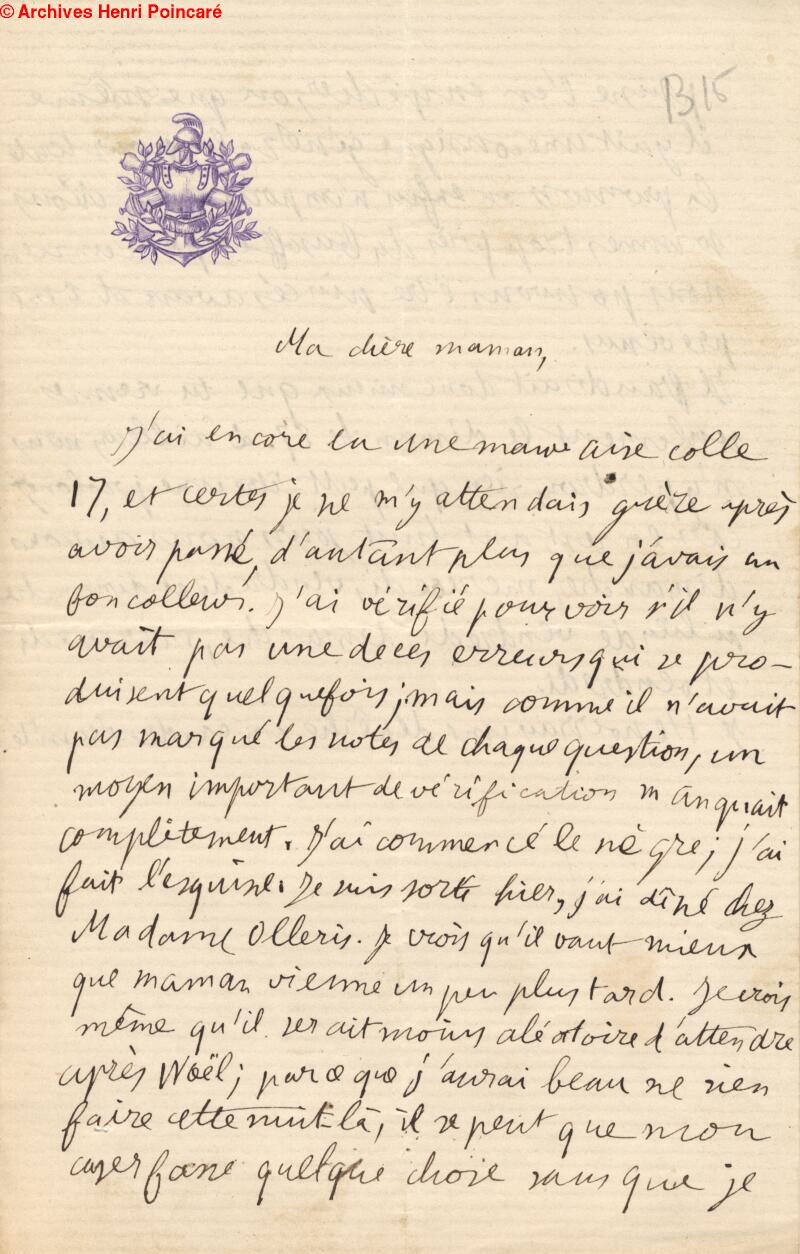 © Archives Henri Poincaré
B 15
Ma chère maman,
J'ai encore eu une mauvaise colle
17, et certes je ne m'y attendais guère après
avoir passé, d'autant plus que j'avais un
bon colleur. J'ai vérifié pour voir s'il n'y
avait pas une de ces erreurs qui se pro-
duisent quelquefois; mais comme il n'avait
pas marqué les notes de chaque question, un
moyen important de vérification manquait
complètement. J'ai commencé le nègre; j'ai
fait l'esquisse. Je suis sorti hier, j'ai dîné chez
Madame Olleris. Je crois qu'il vaut mieux
que maman vienne un peu plus tard. Je crois
même qu'il serait moins aléatoire d'attendre
après Noël; parce que j'aurai beau ne rien
faire cette nuit-là, il se peut que mon
caser fasse quelque chose sans que je